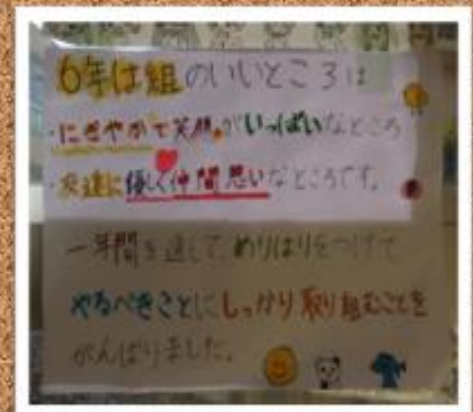 6年は組のいいところは
・にぎやかで笑顔がいっぱいなところ
・友達に優しく仲間思いなところです。
一年間を通して、めりはりをつけて
やるべきことにしっかり取り組むことを
がんばりました。